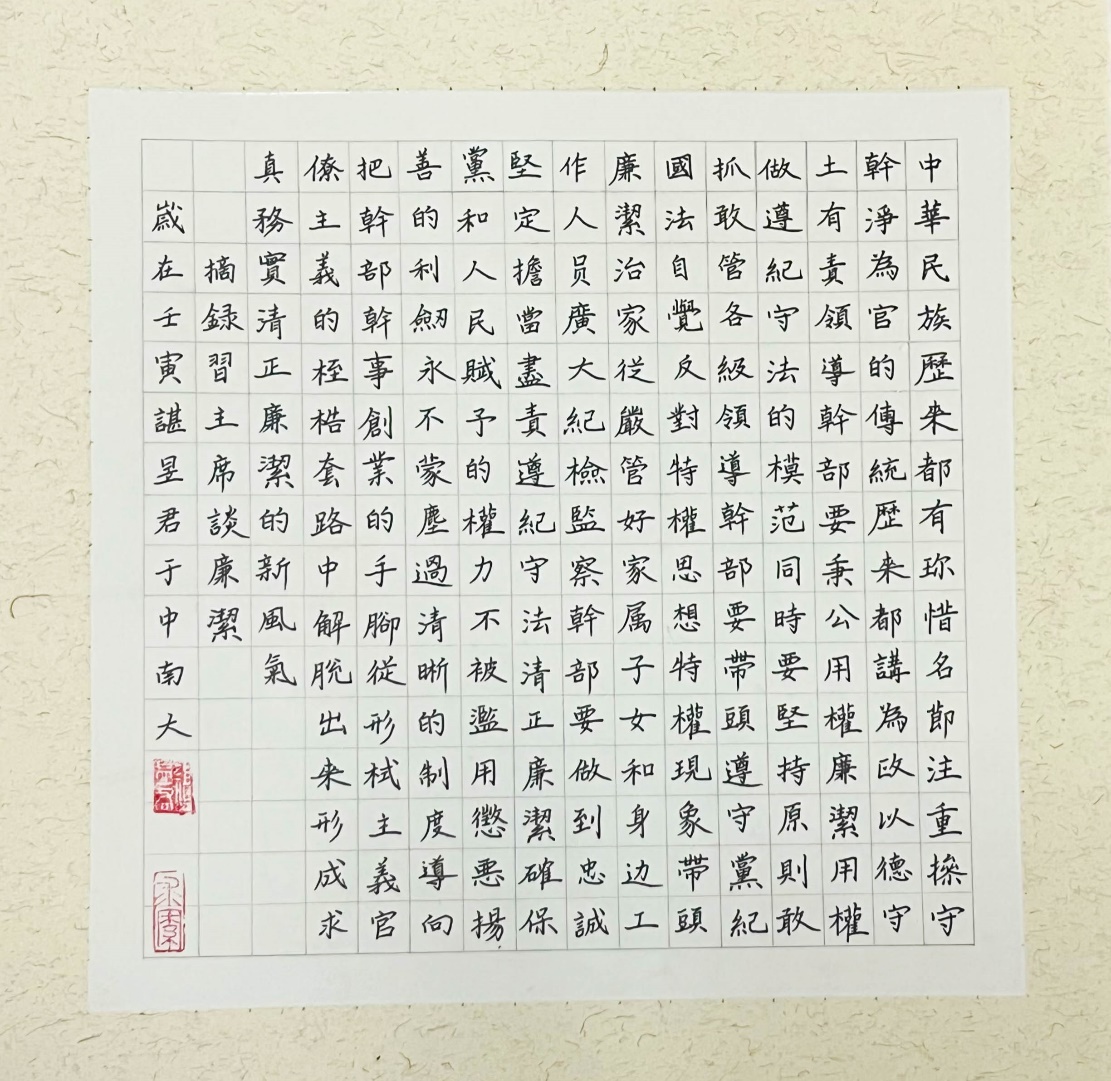 中華民族歷来都有珎惜名節注重操守
幹淨為官的傳統歷来都講為政以德守
土有責領導幹部要秉公用權廉潔用權
做遵紀守法的模范同時要堅持原則敢
抓敢管各級領導幹部要帶頭遵守黨紀
國法自覺反對特權思想特權現象帶頭
廉潔治家從嚴管好家属子女和身边工
作人员廣大紀檢監察幹部要做到忠誠
堅定擔當盡責遵紀守法清正廉潔確保
黨和人民賦予的權力不被濫用懲悪揚
善的利劒永不蒙塵過清晰的制度導向
把幹部幹事創業的手腳從形式主義官
僚主義的桎梏套路中解脫出来形成求
真務實清正廉潔的新風氣
摘録習主席談廉潔
歲在壬寅諶昱君于中南大